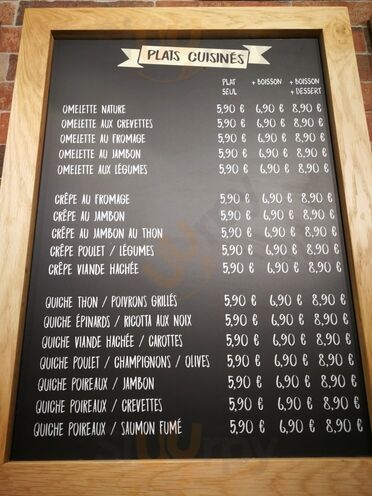 PLATS CUISINÉS
PLAT SEUL + BOISSON + BOISSON + DESSERT
OMELETTE NATURE 5,90 € 6,90 € 8,90 €
OMELETTE AUX CREVETTES 5,90 € 6,90 € 8,90 €
OMELETTE AU FROMAGE 5,90 € 6,90 € 8,90 €
OMELETTE AU JAMBON 5,90 € 6,90 € 8,90 €
OMELETTE AUX LÉGUMES 5,90 € 6,90 € 8,90 €
CRÊPE AU FROMAGE 5,90 € 6,90 € 8,90 €
CRÊPE AU JAMBON 5,90 € 6,90 € 8,90 €
CRÊPE AU JAMBON AU THON 5,90 € 6,90 € 8,90 €
CRÊPE POULET / LÉGUMES 5,90 € 6,90 € 8,90 €
CRÊPE VIANDE HACHÉE 5,90 € 6,90 € 8,90 €
QUICHE THON / POIVRONS GRILLÉS 5,90 € 6,90 € 8,90 €
QUICHE ÉPINARDS / RICOTTA AUX NOIX 5,90 € 6,90 € 8,90 €
QUICHE VIANDE HACHÉE / CAROTTES 5,90 € 6,90 € 8,90 €
QUICHE POULET / CHAMPIGNONS / OLIVES 5,90 € 6,90 € 8,90 €
QUICHE POIREAUX / JAMBON 5,90 € 6,90 € 8,90 €
QUICHE POIREAUX / CREVETTES 5,90 € 6,90 € 8,90 €
QUICHE POIREAUX / SAUMON FUMÉ 5,90 € 6,90 € 8,90 €